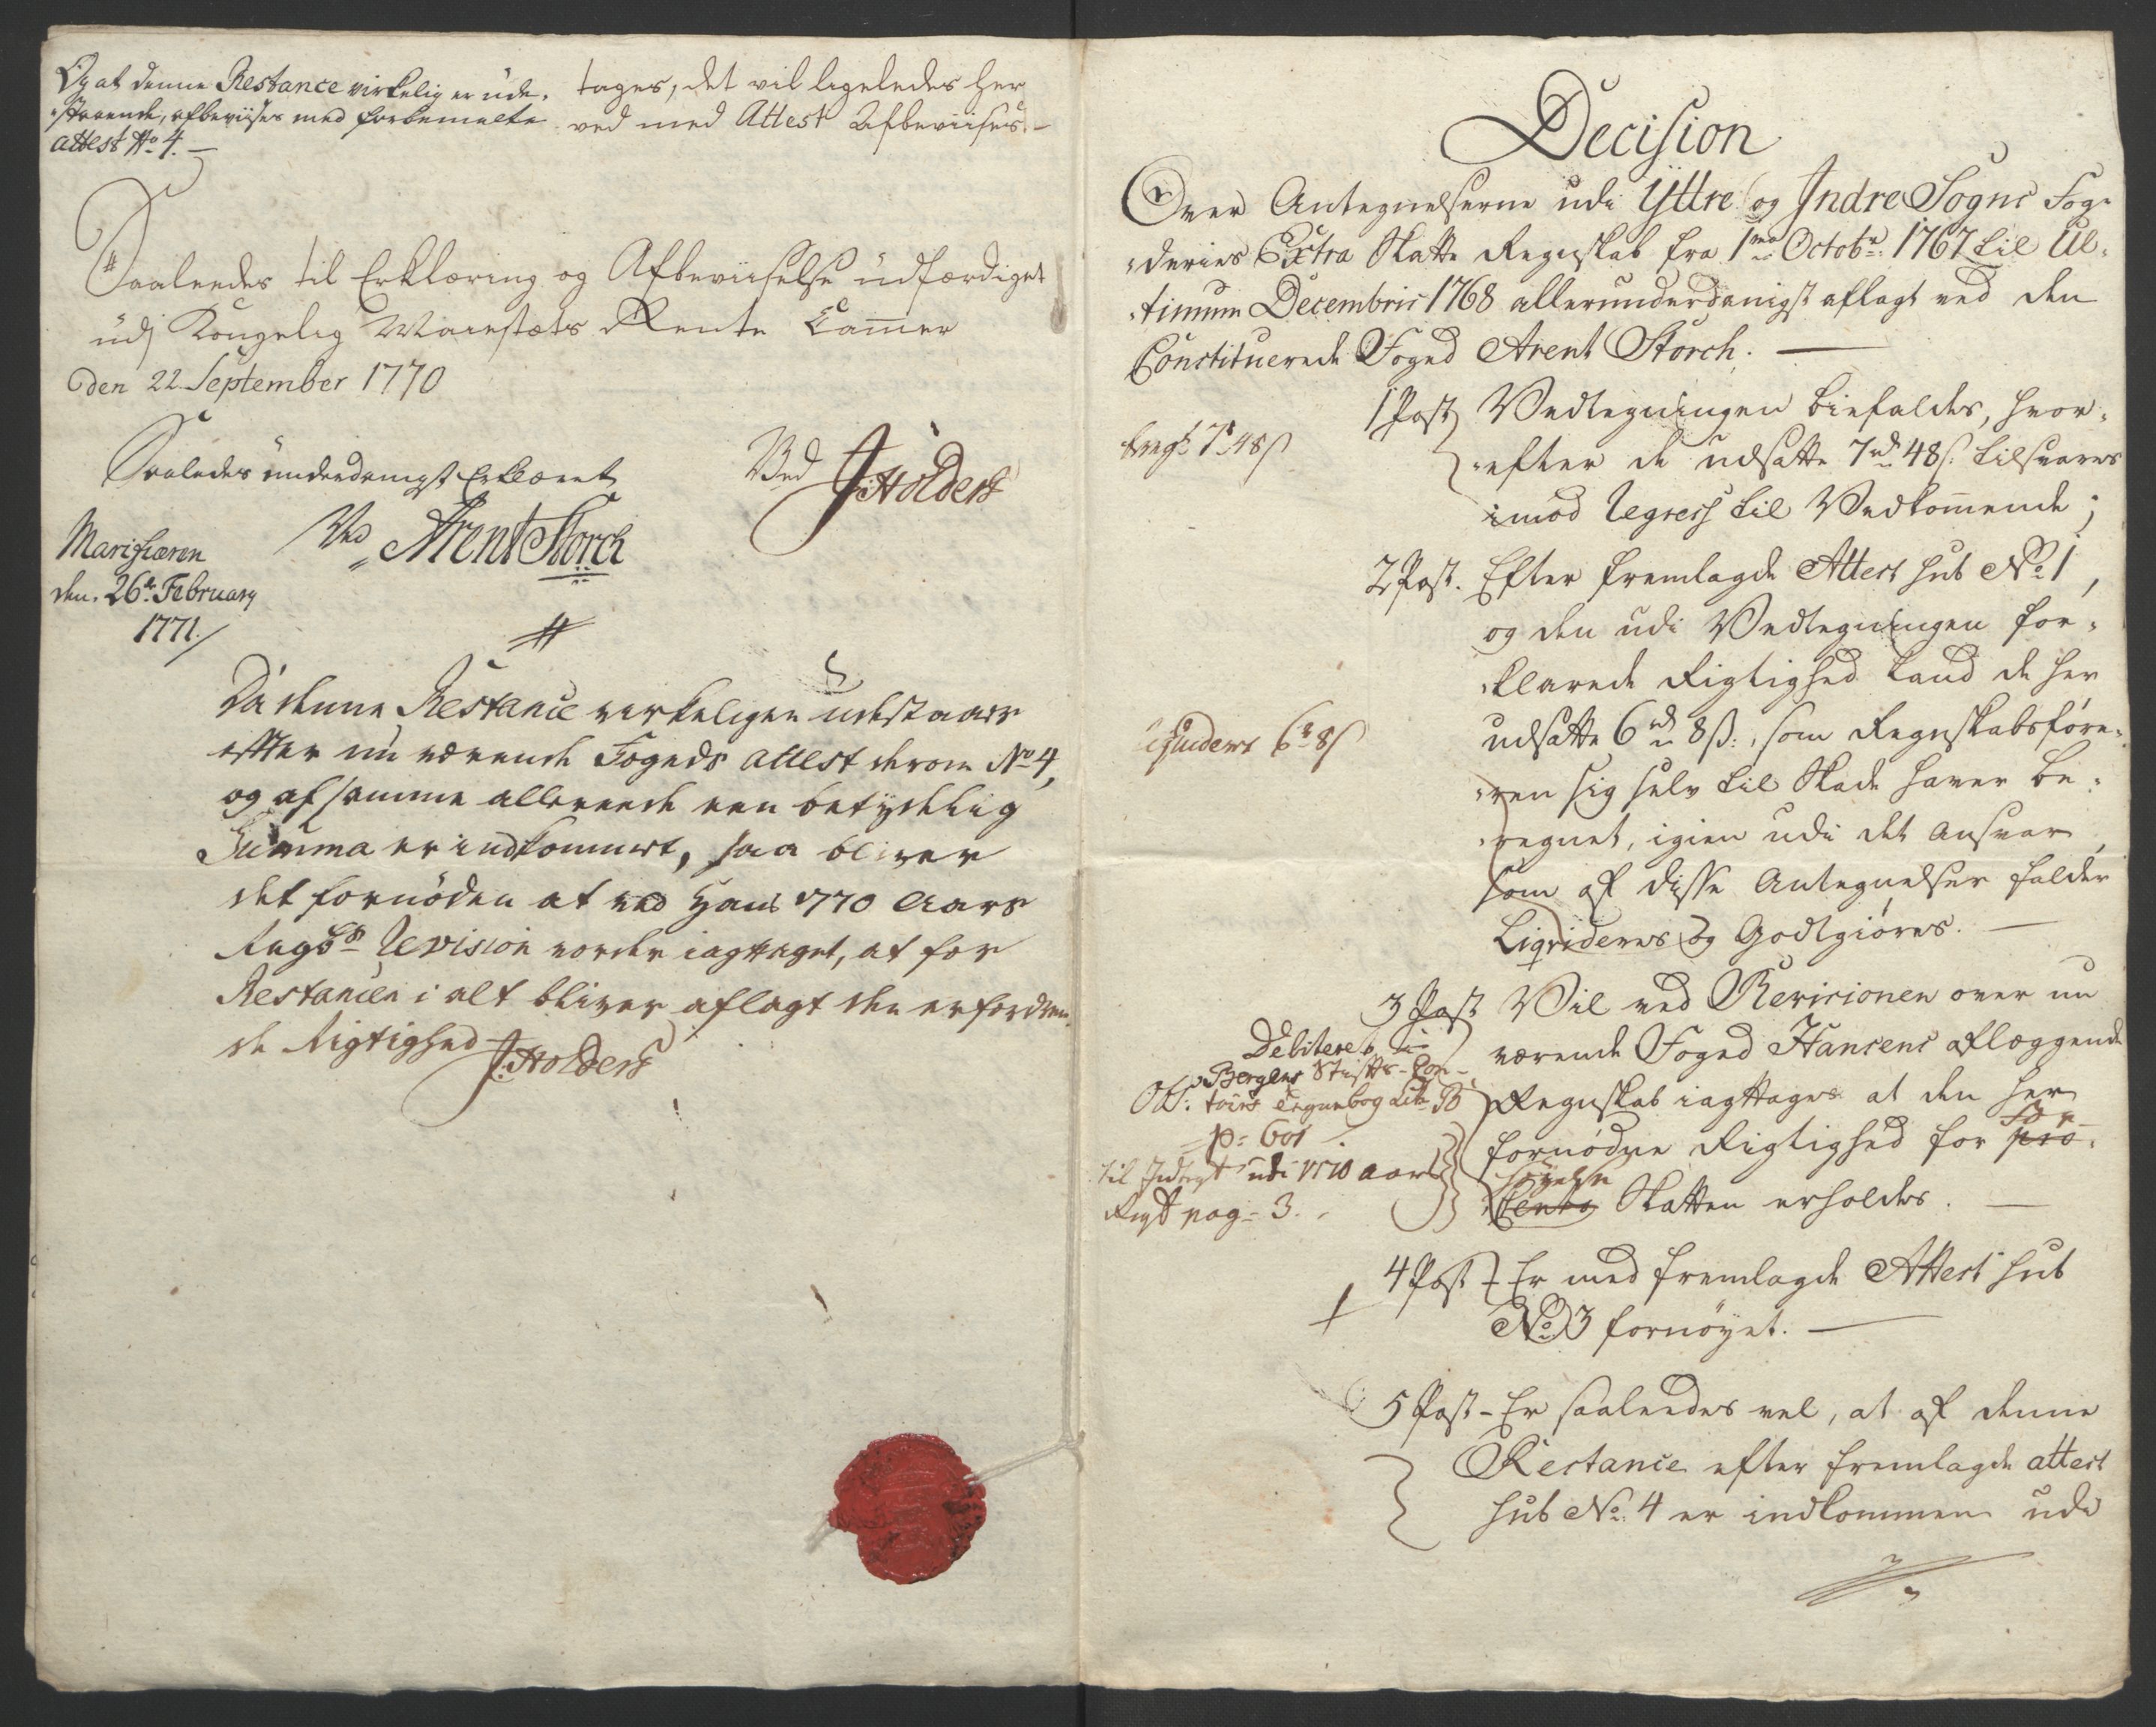 Og at denne Restance virkelig er ude-
staaende, afbeviises med forbemelte
attest No 4. —
tages, det vil ligeledes her
ved med Attest Afbeviises. —
Saaleedes til Erklæring og Afbeviiselse udfærdiget
udj Kongelig Maiestæts Rente Cammer
den 22 September 1770
Saaledes underdanigst Erklæret
Ved
J: Holders
Ved Arent Storch
den 26de February
1771./
Da denne Restance virkeligen udestaaer
efter nu værende Fogeds attest derom No 4,
og af samme allereede een betydelig
Summa er indkommet, saa bliver
det fornøden at ved Hans 1770 Aars
Regsbs Revision vorder iagttaget, at for
Restancen i alt bliver aflagt den erfordren-
de Rigtighed
J: Holders
Decision
Over Antegnelserne udi Yttre og Indre Sogns Fog-
deries Extra Skatte Regnskab fra 1ma Octobr: 1767 til Ul-
timum Decembris 1768 allerunderdanigst aflagt ved den
Constituerede Foged Arent Storch. —
1 Post Vedtegningen biefaldes, hvor-
efter de udsatte 7rd 48s. tilsvares
imod Regress til Vedkommende;
7r 48s
2 Post. Efter fremlagde Attest sub No 1,
og den udi Vedtegningen for-
klarede Rigtighed kand de her
udsatte 6rd 8s:, som Regnskabsføre-
ren sig selv til Skade haver be-
regnet, igien udi det Ansvar,
som af disse Antegnelser falder
Liqvideres og Godtgiøres. —
liqvideres 6r 8s
3 Post Vil ved Revisionen over nu
værende Foged Hansens aflæggende
Regnskab iagttages at den her
fornødne Rigtighed for pro- for-
Cento høyelse Skatten erholdes. —
Debiteres i
Bergens Stifts-Con-
toirs Tegnebog Litr B
p: 601
til Indtegt udi 1770 Aars
Regsb pag: 3.
4 Post Er med fremlagde Attest sub
No 3 fornøyet. —
5 Post - Er saaleedes vel, at af denne
Restance efter fremlagde attest
sub No. 4 er indkommen udi